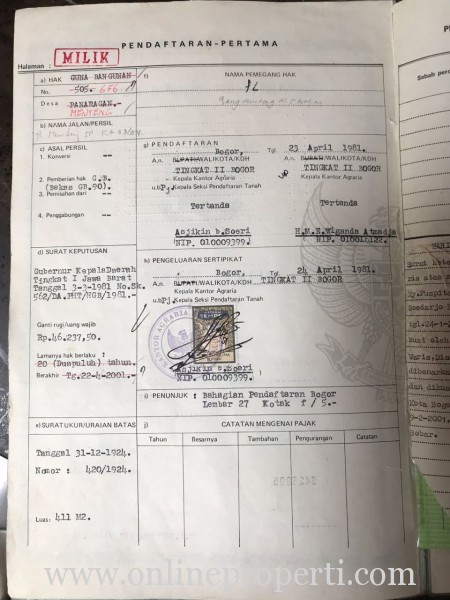 PENDAFTARAN-PERTAMA
Halaman :
MILIK
a) HAK GUNA BANGUNAN
No. 505. 676.-
Desa PANARAGAN.-
MENTENG
b) NAMA JALAN/PERSIL
c) ASAL PERSIL
1. Konversi --
2. Pemberian hak G.B.
(Bekas GB.90).
3. Pemisahan dari --
4. Penggabungan --
d) SURAT KEPUTUSAN
Gubernur KepalaDaerah
Tingkat I Jawa Barat
Tanggal 3-3-1981 No.Sk.
562/DA.PHT/HGB/1981.-
Ganti rugi/uang wajib
Rp.46.237,50
Lamanya hak berlaku :
20 (Duapuluh) tahun.
Berakhir Tg.22-4-2001.-
e) SURAT UKUR/URAIAN BATAS
Tanggal 31-12-1924.
Nomor : 420/1924.
Luas: 411 M2.
f) NAMA PEMEGANG HAK
g) PENDAFTARAN
Bogor, Tgl 23 April 1981.
A.n. BUPATI/WALIKOTA/KDH A.n. BUPATI/WALIKOTA/KDH
TINGKAT II BOGOR TINGKAT II BOGOR
Kepala Kantor Agraria Kepala Kantor Agraria
u.b Pj. Kepala Seksi Pendaftaran Tanah
Tertanda Tertanda
Asjikin b.Soeri H.M.E.Wiganda Atmadja
NIP. 010099399. NIP. 010016122.
h) PENGELUARAN SERTIPIKAT
Bogor, Tgl. 24 April 1981.
A.n. BUPATI/WALIKOTA/KDH TINGKAT II BOGOR
Kepala Kantor Agraria
u.b Pj. Kepala Seksi Pendaftaran Tanah
KANTOR AGRARIA
Asjikin b.Soeri
NIP. 010099399.
i) PENUNJUK : Bahagian Pendaftaran Bogor
Lembar 27 Kotak f / 5.-
j) CATATAN MENGENAI PAJAK
Tahun Besarnya Tambahan Pengurangan Catatan
Sebab
www.onlineproperti.com